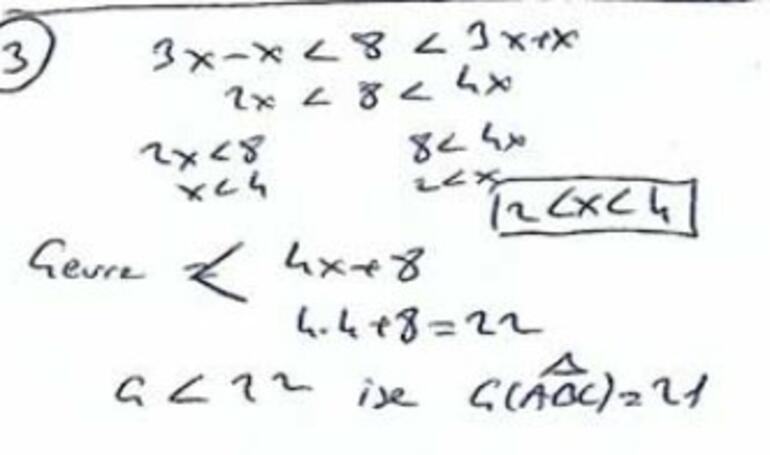 3
3x-x < 8 < 3x+x
2x < 8 < 4x
2x < 8 8 < 4x
x < 4 2 < x 2 < x < 4
Çevre < 4x+8
4.4+8=22
Ç < 22 ise Ç(ABC)=21